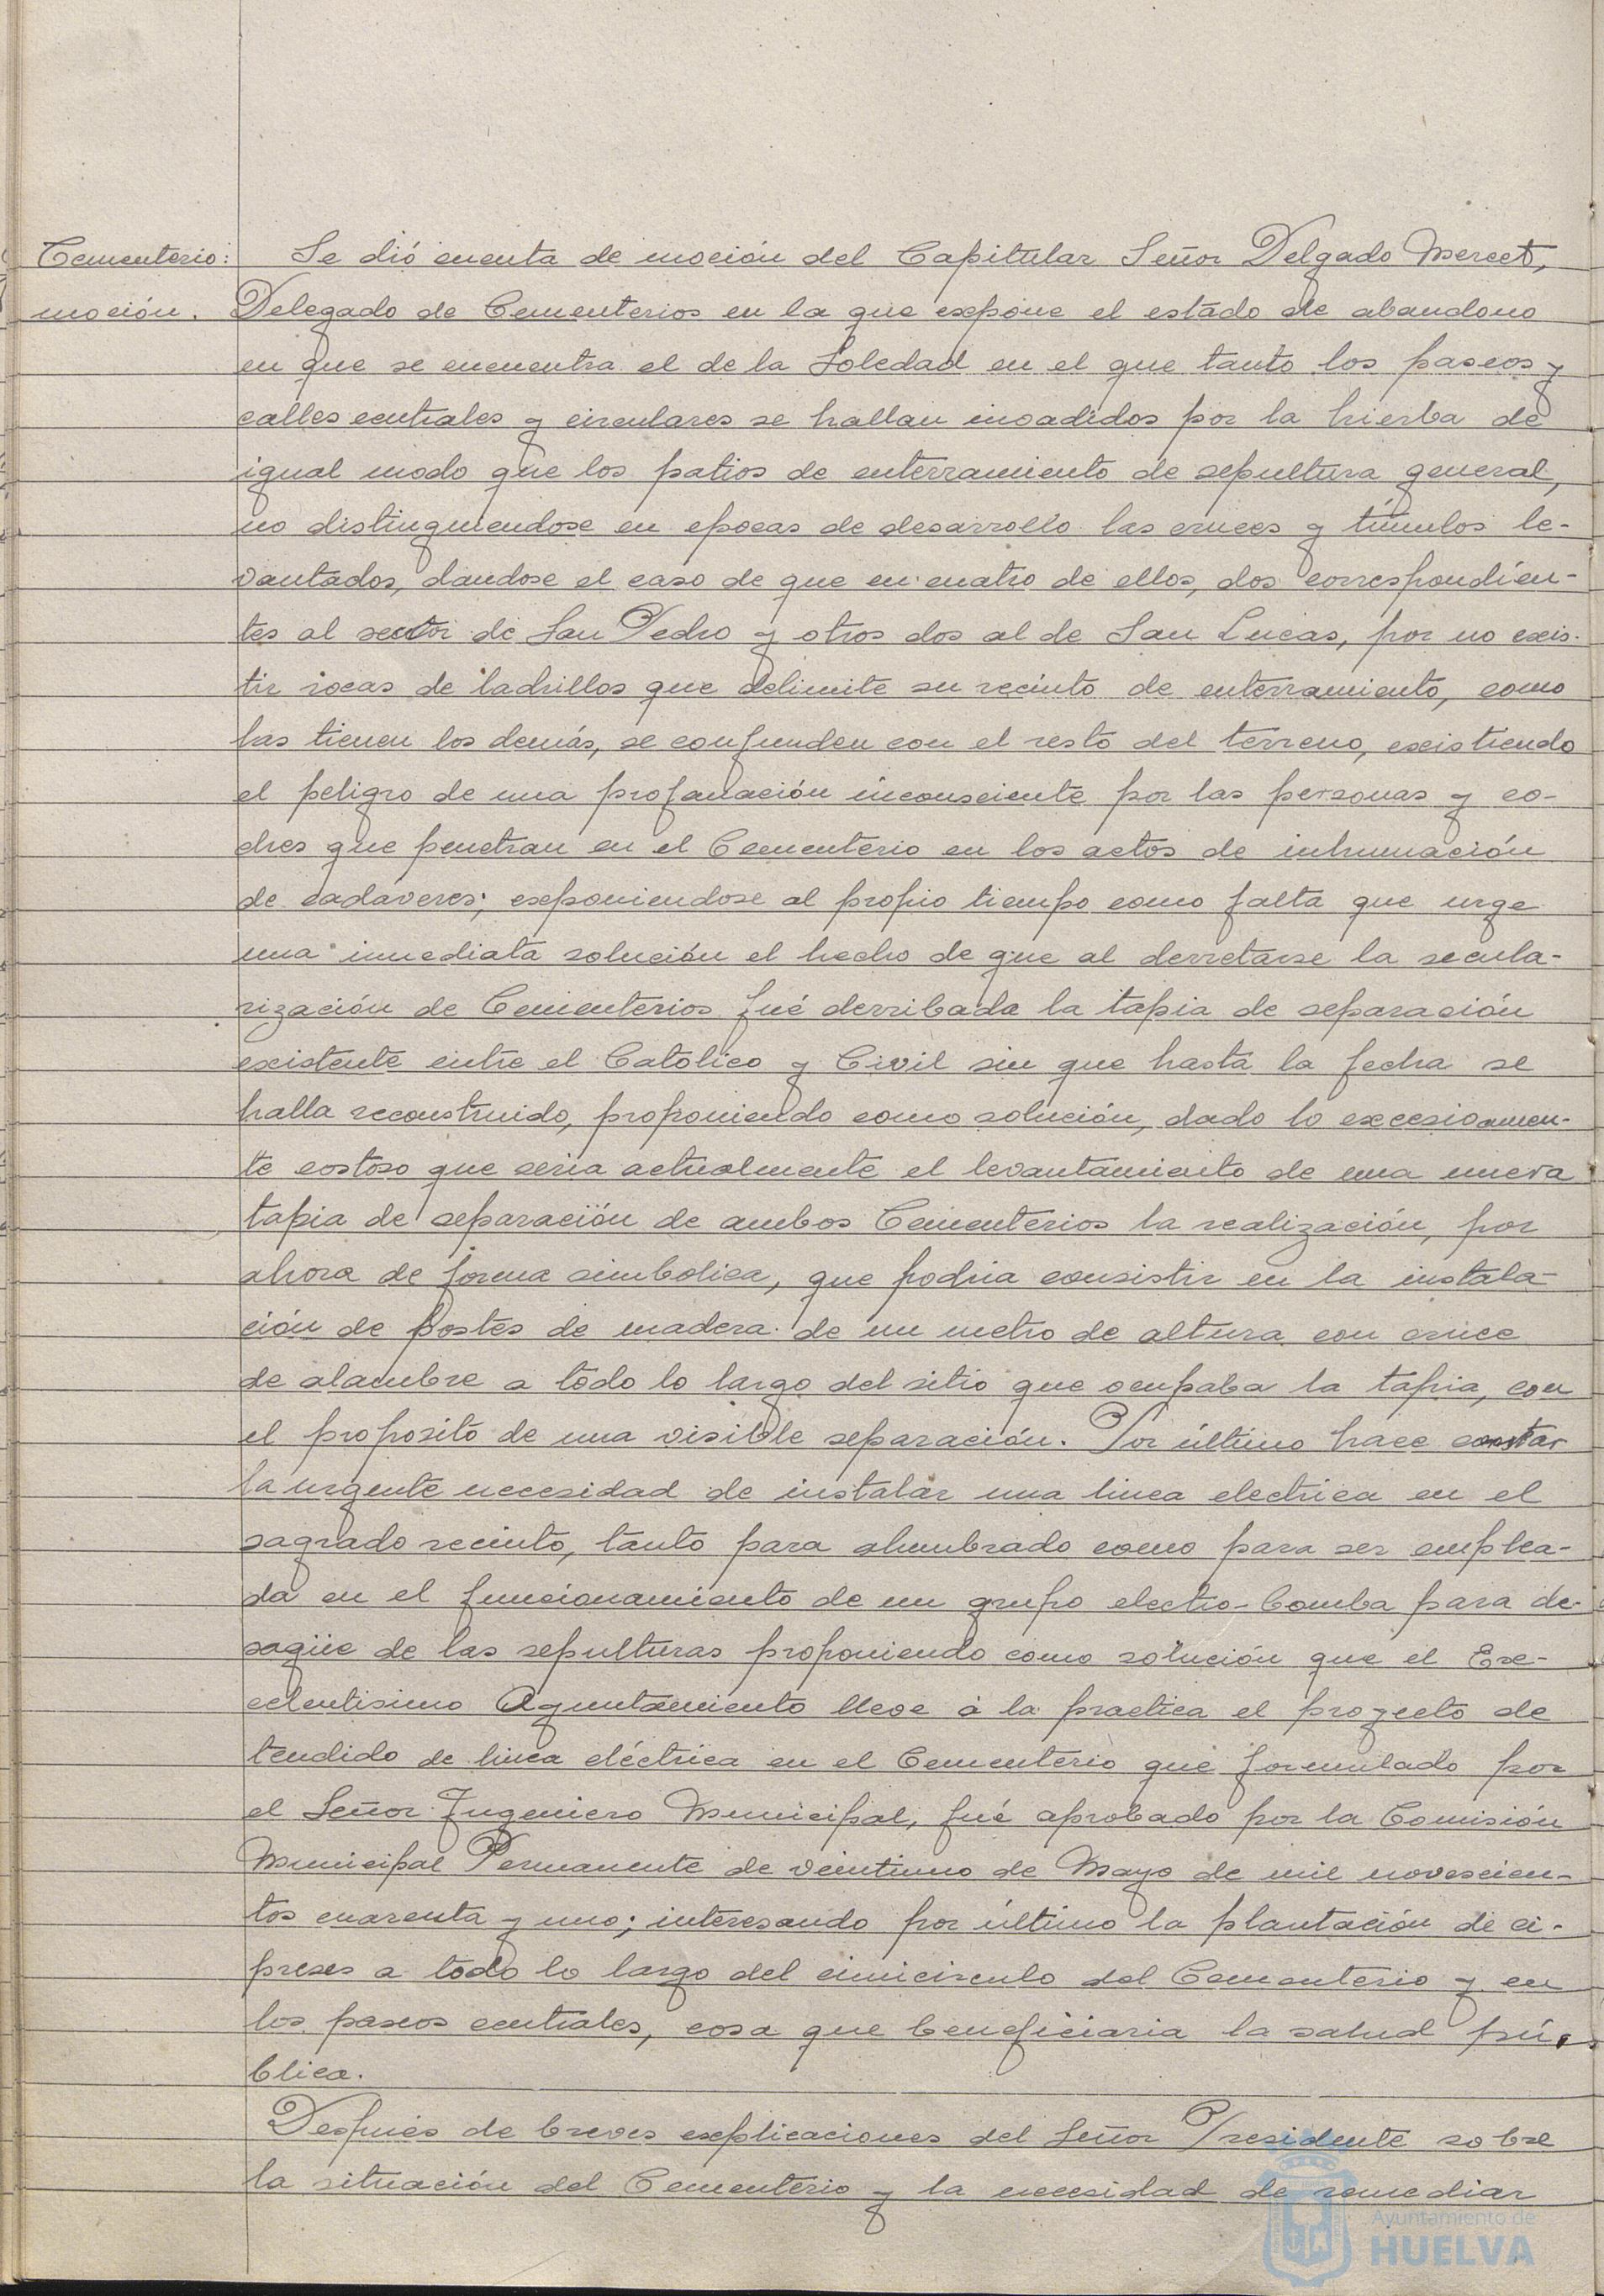 Cementerio:
moción.
Se dió cuenta de moción del Capitular Señor Delgado Mercet,
Delegado de Cementerios en la que expone el estado de abandono
en que se encuentra el de la Soledad en el que tanto los paseos y
calles centrales y circulares se hallan invadidos por la hierba de
igual modo que los patios de enterramiento de sepultura general,
no distinguiendose en epocas de desarrollo las cruces y túmulos le-
vantados, dandose el caso de que en cuatro de ellos, dos correspondien-
tes al sector de San Pedro y otros dos al de San Lucas, por no exis-
tir rocas de ladrillos que delimite su recinto de enterramiento, como
las tienen los demás, se confunden con el resto del terreno, existiendo
el peligro de una profanación inconsciente por las personas y co-
ches que penetran en el Cementerio en los actos de inhumación
de cadáveres; exponiendose al propio tiempo como falta que urge
una inmediata solución el hecho de que al derretarse la secula-
rización de Cementerios fué derribada la tapia de separación
existente entre el Católico y Civil sin que hasta la fecha se
halla reconstruido, proponiendo como solución, dado lo excesivamen-
te costoso que seria actualmente el levantamiento de una nueva
tapia de separación de ambos Cementerios la realización, por
ahora de forma simbolica, que podria consistir en la instala-
ción de postes de madera de un metro de altura con cruce
de alambre a todo lo largo del sitio que ocupaba la tapia, con
el proposito de una visible separación. Por último hace constar
la urgente necesidad de instalar una linea electrica en el
sagrado recinto, tanto para alumbrado como para ser emplea-
da en el funcionamiento de un grupo electro-bomba para de-
sagüe de las sepulturas proponiendo como solución que el Exc-
celentisimo Ayuntamiento lleve á la practica el proyecto de
tendido de linea eléctrica en el Cementerio que formulado por
el Señor Ingeniero Municipal, fué aprobado por la Comisión
Municipal Permanente de veintiuno de Mayo de mil novescien-
tos cuarenta y uno; interesando por último la plantación de ci-
preses a todo lo largo del cimicirculo del Cementerio y en
los paseos centrales, cosa que beneficiaria la salud pú-
blica.
Después de breves explicaciones del Señor Presidente sobre
la situación del Cementerio y la necesidad de remediar
Ayuntamiento de
HUELVA